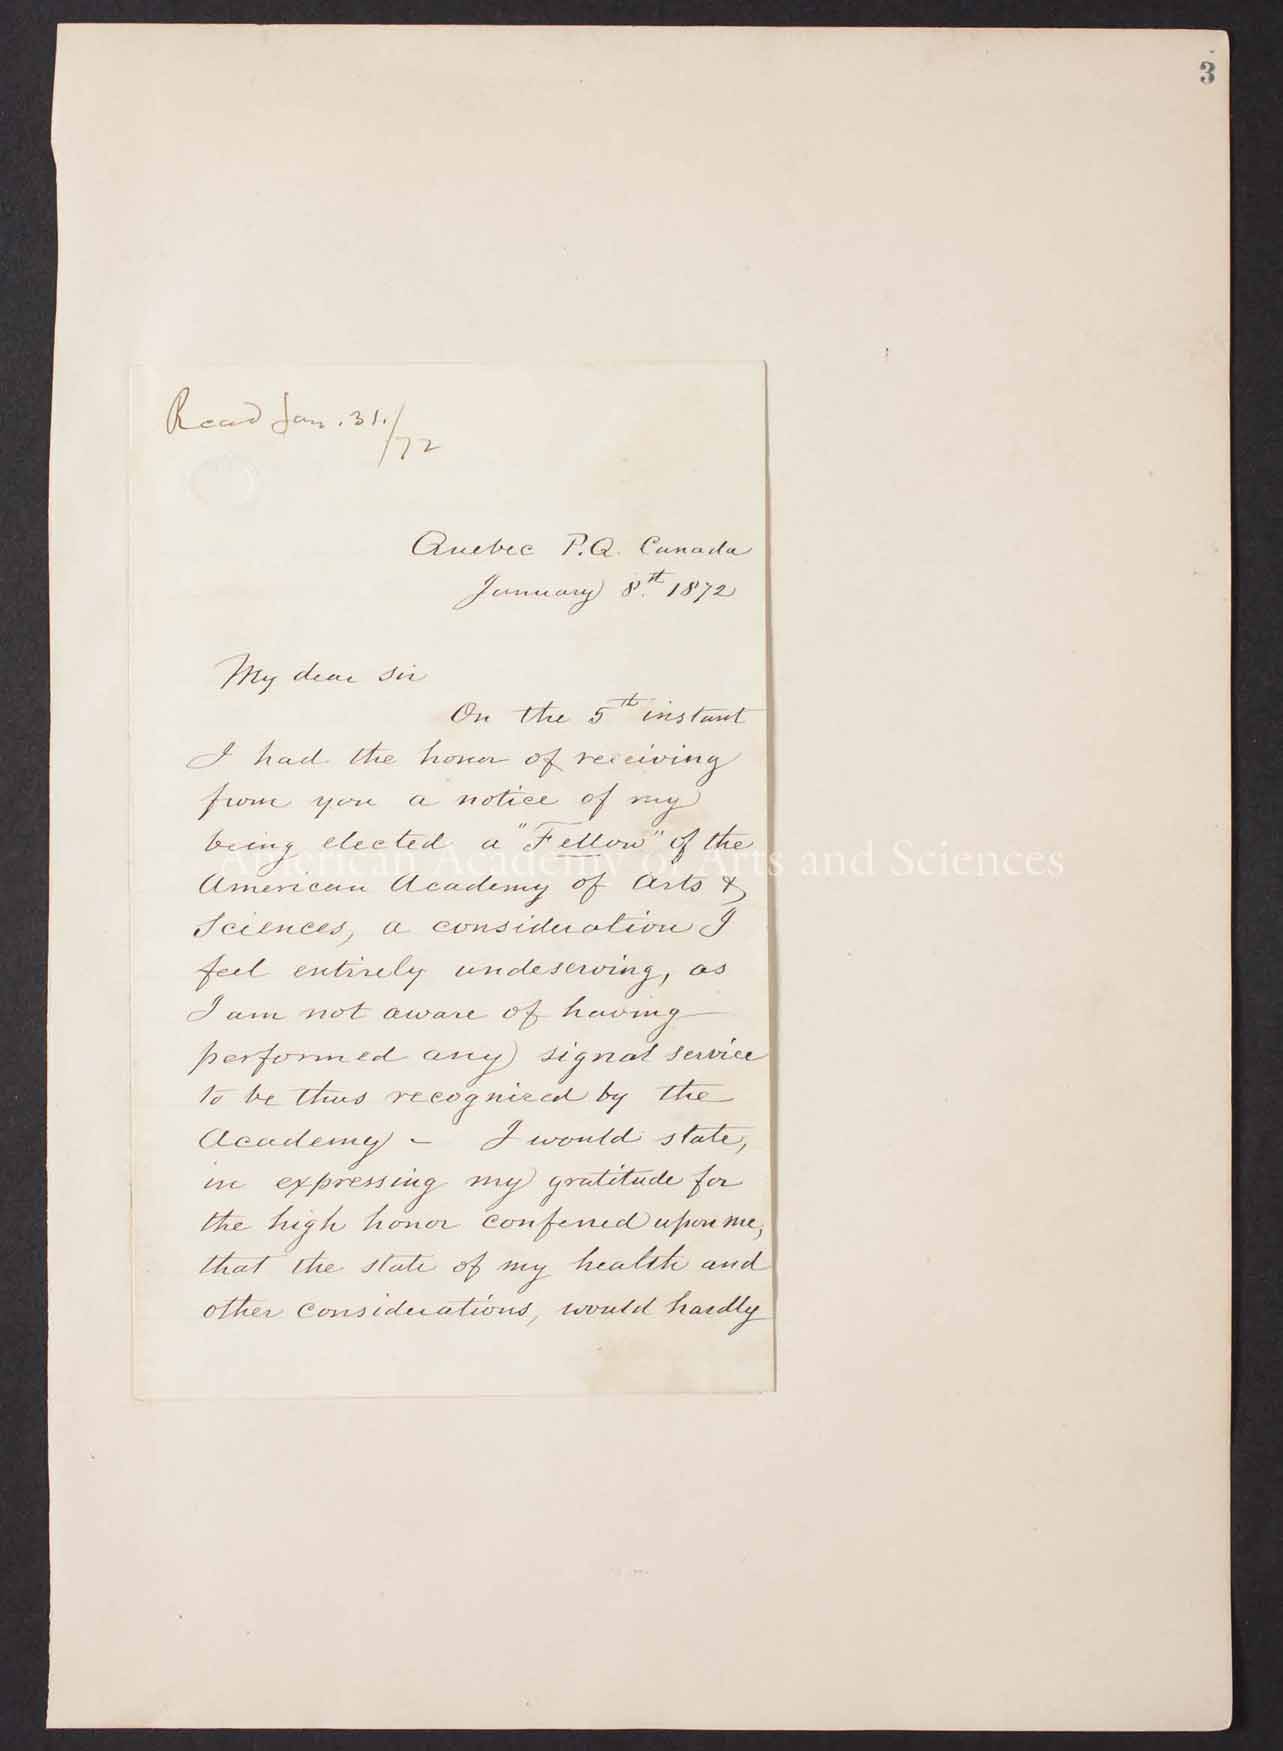 3
Read Jan. 31./72
Quebec P.Q. Canada
January 8.st 1872
My dear Sir
On the 5th instant
I had the honor of receiving
from you a notice of my
being elected a "Fellow" of the
American Academy of Arts and Sciences
American Academy of Arts &
Sciences, a consideration I
feel entirely undeserving, as
I am not aware of having
performed any signal service
to be thus recognized by the
Academy - I would state,
in expressing my gratitude for
the high honor conferred upon me,
that the state of my health and
other considerations, would hardly